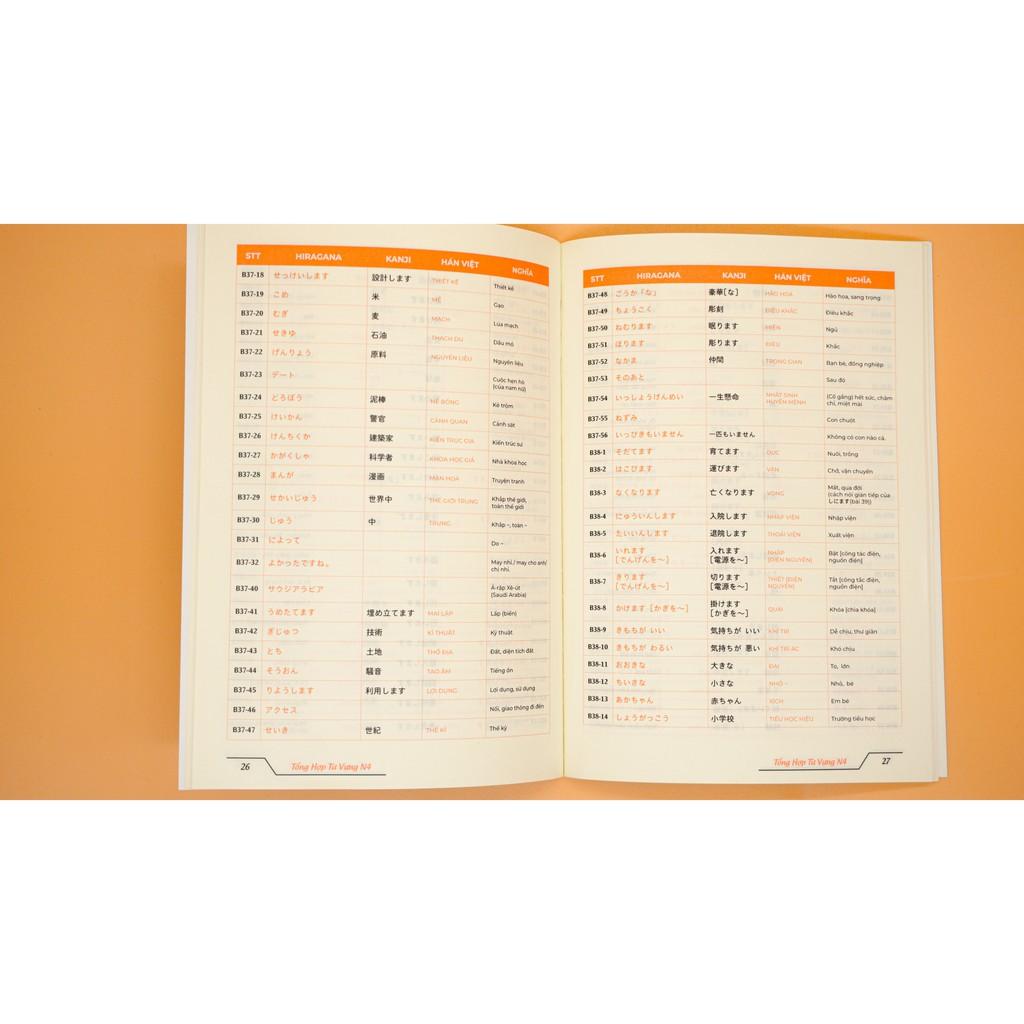 STT HIRAGANA KANJI HÁN VIỆT NGHĨA
B37-18 せっけいします 設計します THIẾT KẾ Thiết kế
B37-19 こめ 米 MỄ Gạo
B37-20 むぎ 麦 MẠCH Lúa mạch
B37-21 せきゆ 石油 THẠCH DU Dầu mỏ
B37-22 げんりょう 原料 NGUYÊN LIỆU Nguyên liệu
B37-23 デート Cuộc hẹn hò
(của nam nữ)
B37-24 どろぼう 泥棒 NÊ BỔNG Kẻ trộm
B37-25 けいかん 警官 CẢNH QUAN Cảnh sát
B37-26 けんちくか 建築家 KIẾN TRÚC GIA Kiến trúc sư
B37-27 かがくしゃ 科学者 KHOA HỌC GIẢ Nhà khoa học
B37-28 まんが 漫画 MẠN HOẠ Truyện tranh
B37-29 せかいじゅう 世界中 THẾ GIỚI TRUNG Khắp thế giới,
toàn thế giới
B37-30 じゅう 中 TRUNG Khắp ~, toàn ~
B37-31 によって Do ~
B37-32 よかったですね。 May nhỉ./ may cho anh/
chị nhỉ.
B37-40 サウジアラビア Ả-rập Xê-út
(Saudi Arabia)
B37-41 うめたてます 埋め立てます MAI LẬP Lấp (biển)
B37-42 ぎじゅつ 技術 KĨ THUẬT Kỹ thuật
B37-43 とち 土地 THỔ ĐỊA Đất, diện tích đất
B37-44 そうおん 騒音 TAO ÂM Tiếng ồn
B37-45 りようします 利用します LỢI DỤNG Lợi dụng, sử dụng
B37-46 アクセス Nối, giao thông đi đến
B37-47 せいき 世紀 THẾ KỈ Thế kỷ
26 Tổng Hợp Từ Vựng N4
STT HIRAGANA KANJI HÁN VIỆT NGHĨA
B37-48 ごうか「な」 豪華[な] HÀO HOA Hào hoa, sang trọng
B37-49 ちょうこく 彫刻 ĐIÊU KHẮC Điêu khắc
B37-50 ねむります 眠ります MIÊN Ngủ
B37-51 ほります 彫ります ĐIÊU Khắc
B37-52 なかま 仲間 TRỌNG GIAN Bạn bè, đồng nghiệp
B37-53 そのあと Sau đó
B37-54 いっしょうけんめい 一生懸命 NHẤT SINH
HUYỀN MỆNH (Cố gắng) hết sức, chăm
chỉ, miệt mài
B37-55 ねずみ Con chuột
B37-56 いっぴきもいません 一匹もいません Không có con nào cả.
B38-1 そだてます 育てます DỤC Nuôi, trồng
B38-2 はこびます 運びます VẬN Chở, vận chuyển
B38-3 なくなります 亡くなります VONG Mất, qua đời
(cách nói gián tiếp của
しにます(bài 39))
B38-4 にゅういんします 入院します NHẬP VIỆN Nhập viện
B38-5 たいいんします 退院します THOÁI VIỆN Xuất viện
B38-6 いれます
[でんげんを〜] 入れます
[電源を〜] NHẬP
[ĐIỆN NGUYÊN] Bật [công tắc điện,
nguồn điện]
B38-7 きります
[でんげんを〜] 切ります
[電源を〜] THIẾT [ĐIỆN
NGUYÊN] Tắt [công tắc điện,
nguồn điện]
B38-8 かけます [かぎを〜] 掛けます
[かぎを〜] QUẢI Khóa [chìa khóa]
B38-9 きもちが いい 気持ちが いい KHÍ TRÌ Dễ chịu, thư giãn
B38-10 きもちが わるい 気持ちが 悪い KHÍ TRÌ ÁC Khó chịu
B38-11 おおきな 大きな ĐẠI To, lớn
B38-12 ちいさな 小さな NHỎ ~ Nhỏ, bé
B38-13 あかちゃん 赤ちゃん XÍCH Em bé
B38-14 しょうがっこう 小学校 TIỂU HỌC HIỆU Trường tiểu học
Tổng Hợp Từ Vựng N4 27